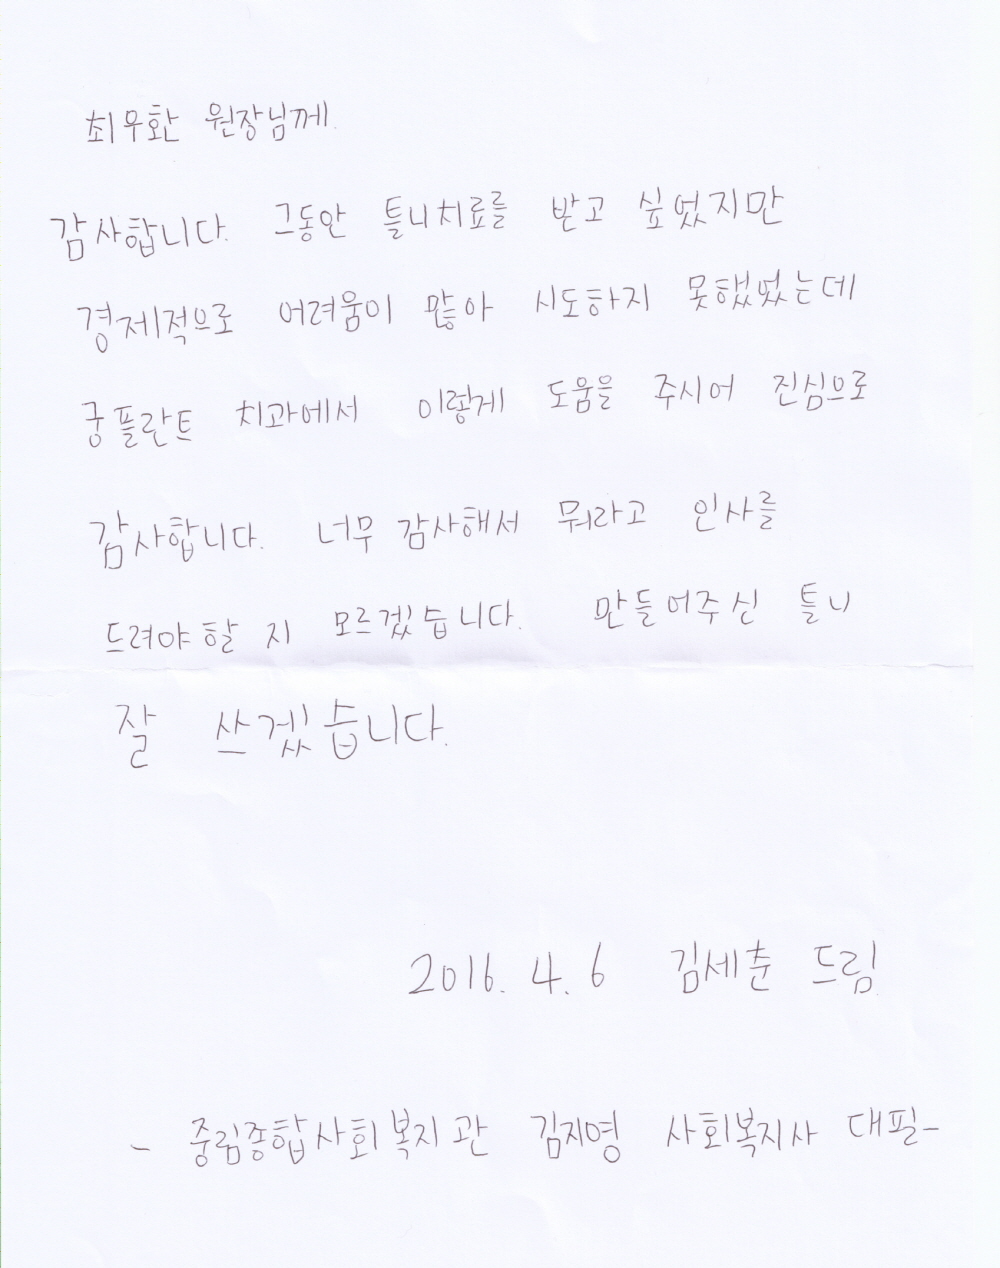 최우환 원장님께.
감사합니다. 그동안 틀니치료를 받고 싶었지만
경제적으로 어려움이 많아 시도하지 못했었는데
궁플란트 치과에서 이렇게 도움을 주시어 진심으로
감사합니다. 너무 감사해서 뭐라고 인사를
드려야할 지 모르겠습니다. 만들어주신 틀니
잘 쓰겠습니다.
2016. 4. 6 김세춘 드림.
- 중림종합사회복지관 김지영 사회복지사 대필-